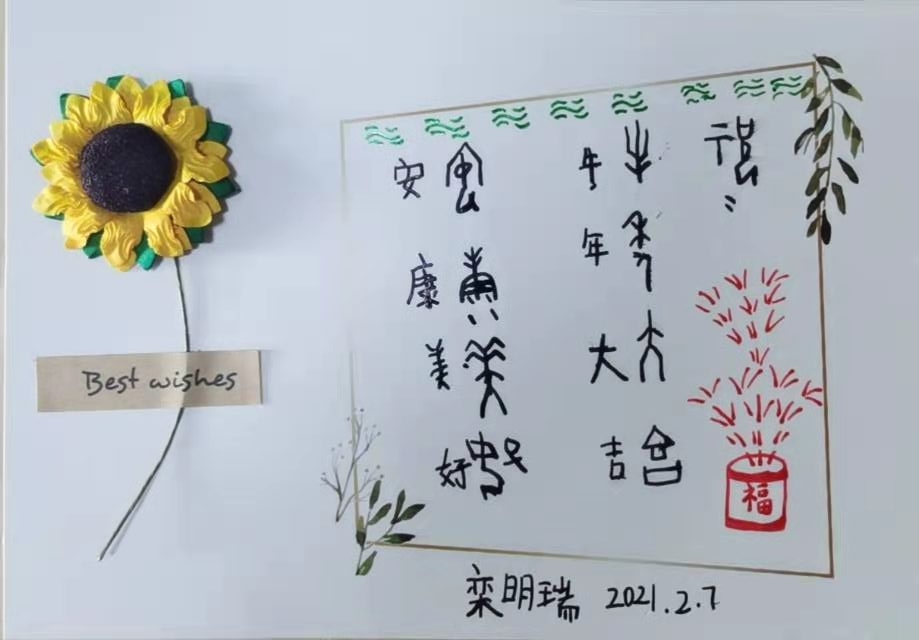 牛年大吉
安康美好
福
Best wishes
栾明瑞 2021.2.7